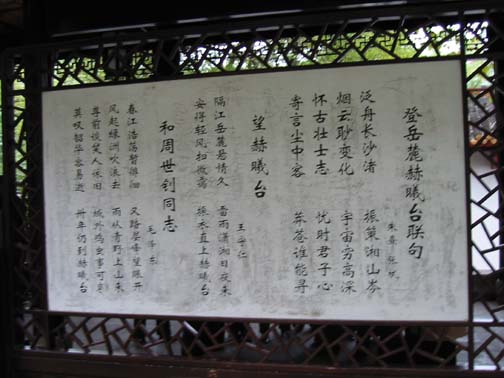 登岳麓赫曦台联句
朱熹 张栻
泛舟长沙渚 振策湘山岑
烟云眇变化 宇宙穷高深
怀古壮士志 忧时君子心
寄言尘中客 莽苍谁能寻
望赫曦台
王守仁
隔江岳麓悬情久 雷雨潇湘日夜来
安得轻风扫微霭 振衣直上赫曦台
和周世钊同志
毛泽东
春江浩荡暂徘徊 又踏层峰望眼开
风起绿洲吹浪去 雨从青野上山来
尊前谈笑人依旧 域外鸡虫事可哀
莫叹韶华容易逝 卅年仍到赫曦台